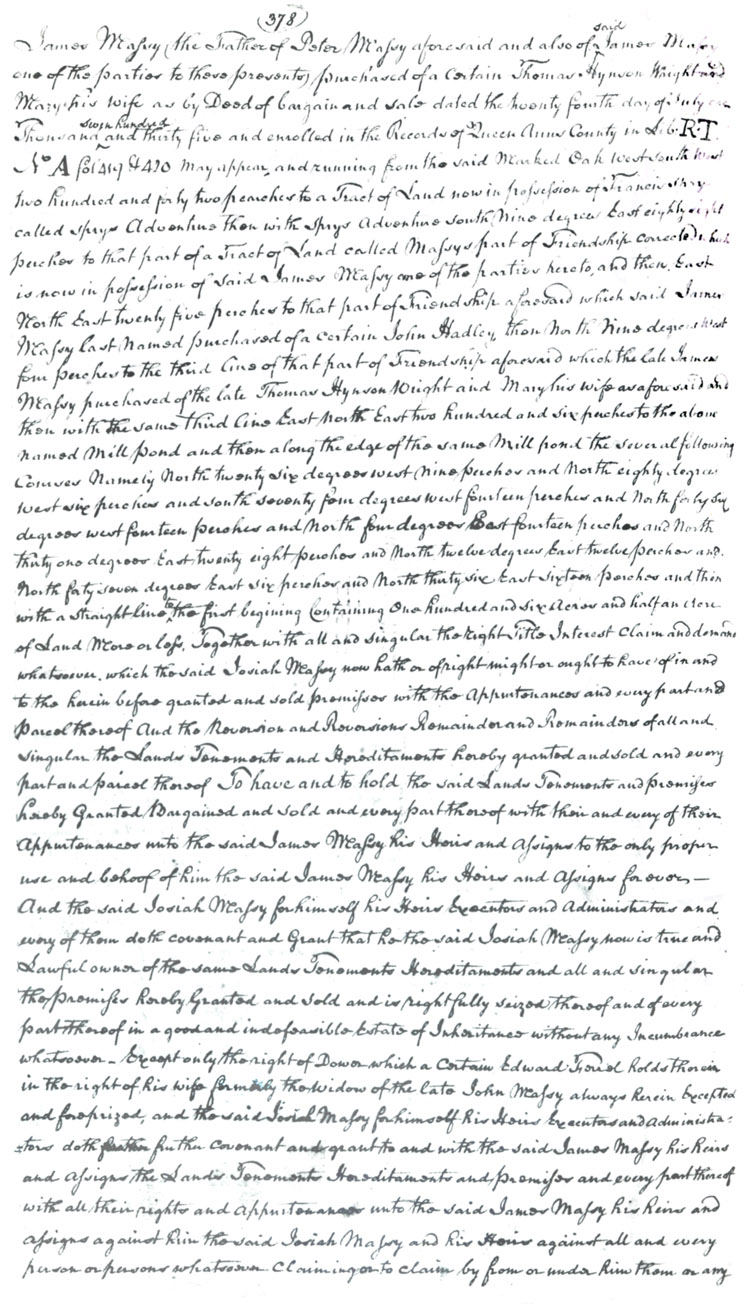 (378)
James Massy (the Father of Peter Massy aforesaid and also of said James Massy
one of the parties to these presents) purchased of a Certain Thomas Hynson Wright and
Mary his wife as by Deed of bargain and sale dated the twenty fourth day of July one
Thousand seven hundred and thirty five and enrolled in the Records of Queen Anns County in Lib. R.T.
No A fol 419 & 420 may appear, and running from the said Marked Oak West south West
two hundred and forty two pearches to a Tract of Land now in possession of Francis Spry
called Sprys Adventure then with Sprys Adventure South Nine degrees East eighty eight
perches to that part of a Tract of Land called Massys part of Friendship corrected which
is now in possession of said James Massy one of the parties hereto, and then East
North East twenty five perches to that part of Friendship aforesaid which said James
Massy last Named purchased of a certain John Hadley, then North Nine degrees West
four perches to the third line of that part of Friendship aforesaid which the late James
Massy purchased of the late Thomas Hynson Wright and Mary his wife as aforesaid and
then with the same third line East North East two hundred and six perches to the above
named Mill Pond and then along the edge of the same Mill pond the several following
Courses Namely North twenty six degrees west Nine perches and North eighty degrees
west six perches and south seventy four degrees west fourteen perches and North forty six
degrees west fourteen perches and North four degrees East fourteen perches and North
thirty one degrees East twenty eight perches and North twelve degrees East twelve perches and
North forty seven degrees East six perches and North thirty six East sixteen perches and then
with a straight line to the first begining Containing One hundred and six Acres and half an Acre
of Land More or less, Together with all and singular the Right Title Interest Claim and demand
whatsoever, which the said Josiah Massy now hath or of right might or ought to have of in and
to the herein before granted and sold Premisses with the Appurtenances and every part and
Parcel thereof And the Reversion and Reversions Remainder and Remainders of all and
singular the Lands Tenements and Hereditaments hereby granted and sold and every
part and parcel thereof To have and to hold the said Lands Tenements and premisses
hereby Granted Bargained and sold and every part thereof with their and every of their
Appurtenances unto the said James Massy his Heirs and Assigns to the only proper
use and behoof of him the said James Massy his Heirs and Assigns for ever,—
And the said Josiah Massy for himself his Heirs Executors and Administrators and
every of them doth covenant and Grant that he the said Josiah Massy now is true and
Lawful owner of the same Lands Tenements Hereditaments and all and singular
the Premisses hereby Granted and sold and is rightfully seized thereof and of every
part thereof in a good and indefeasible Estate of Inheritance without any Incumbrance
whatsoever – Except only the right of Dower which a Certain Edward holds therein
in the right of his wife formerly the widow of the late John Massy always herein Excepted
and foreprized, and the said Josiah Massy for himself his Heirs Executors and Administra=
=tors doth further covenant and grant to and with the said James Massy his heirs
and assigns the Lands Tenements Hereditaments and premisses and every part thereof
with all their rights and appurtenances unto the said James Massy his heirs and
assigns against him the said Josiah Massy and his Heirs against all and every
person or persons whatsoever Claiming or to claim by from or under him them or any